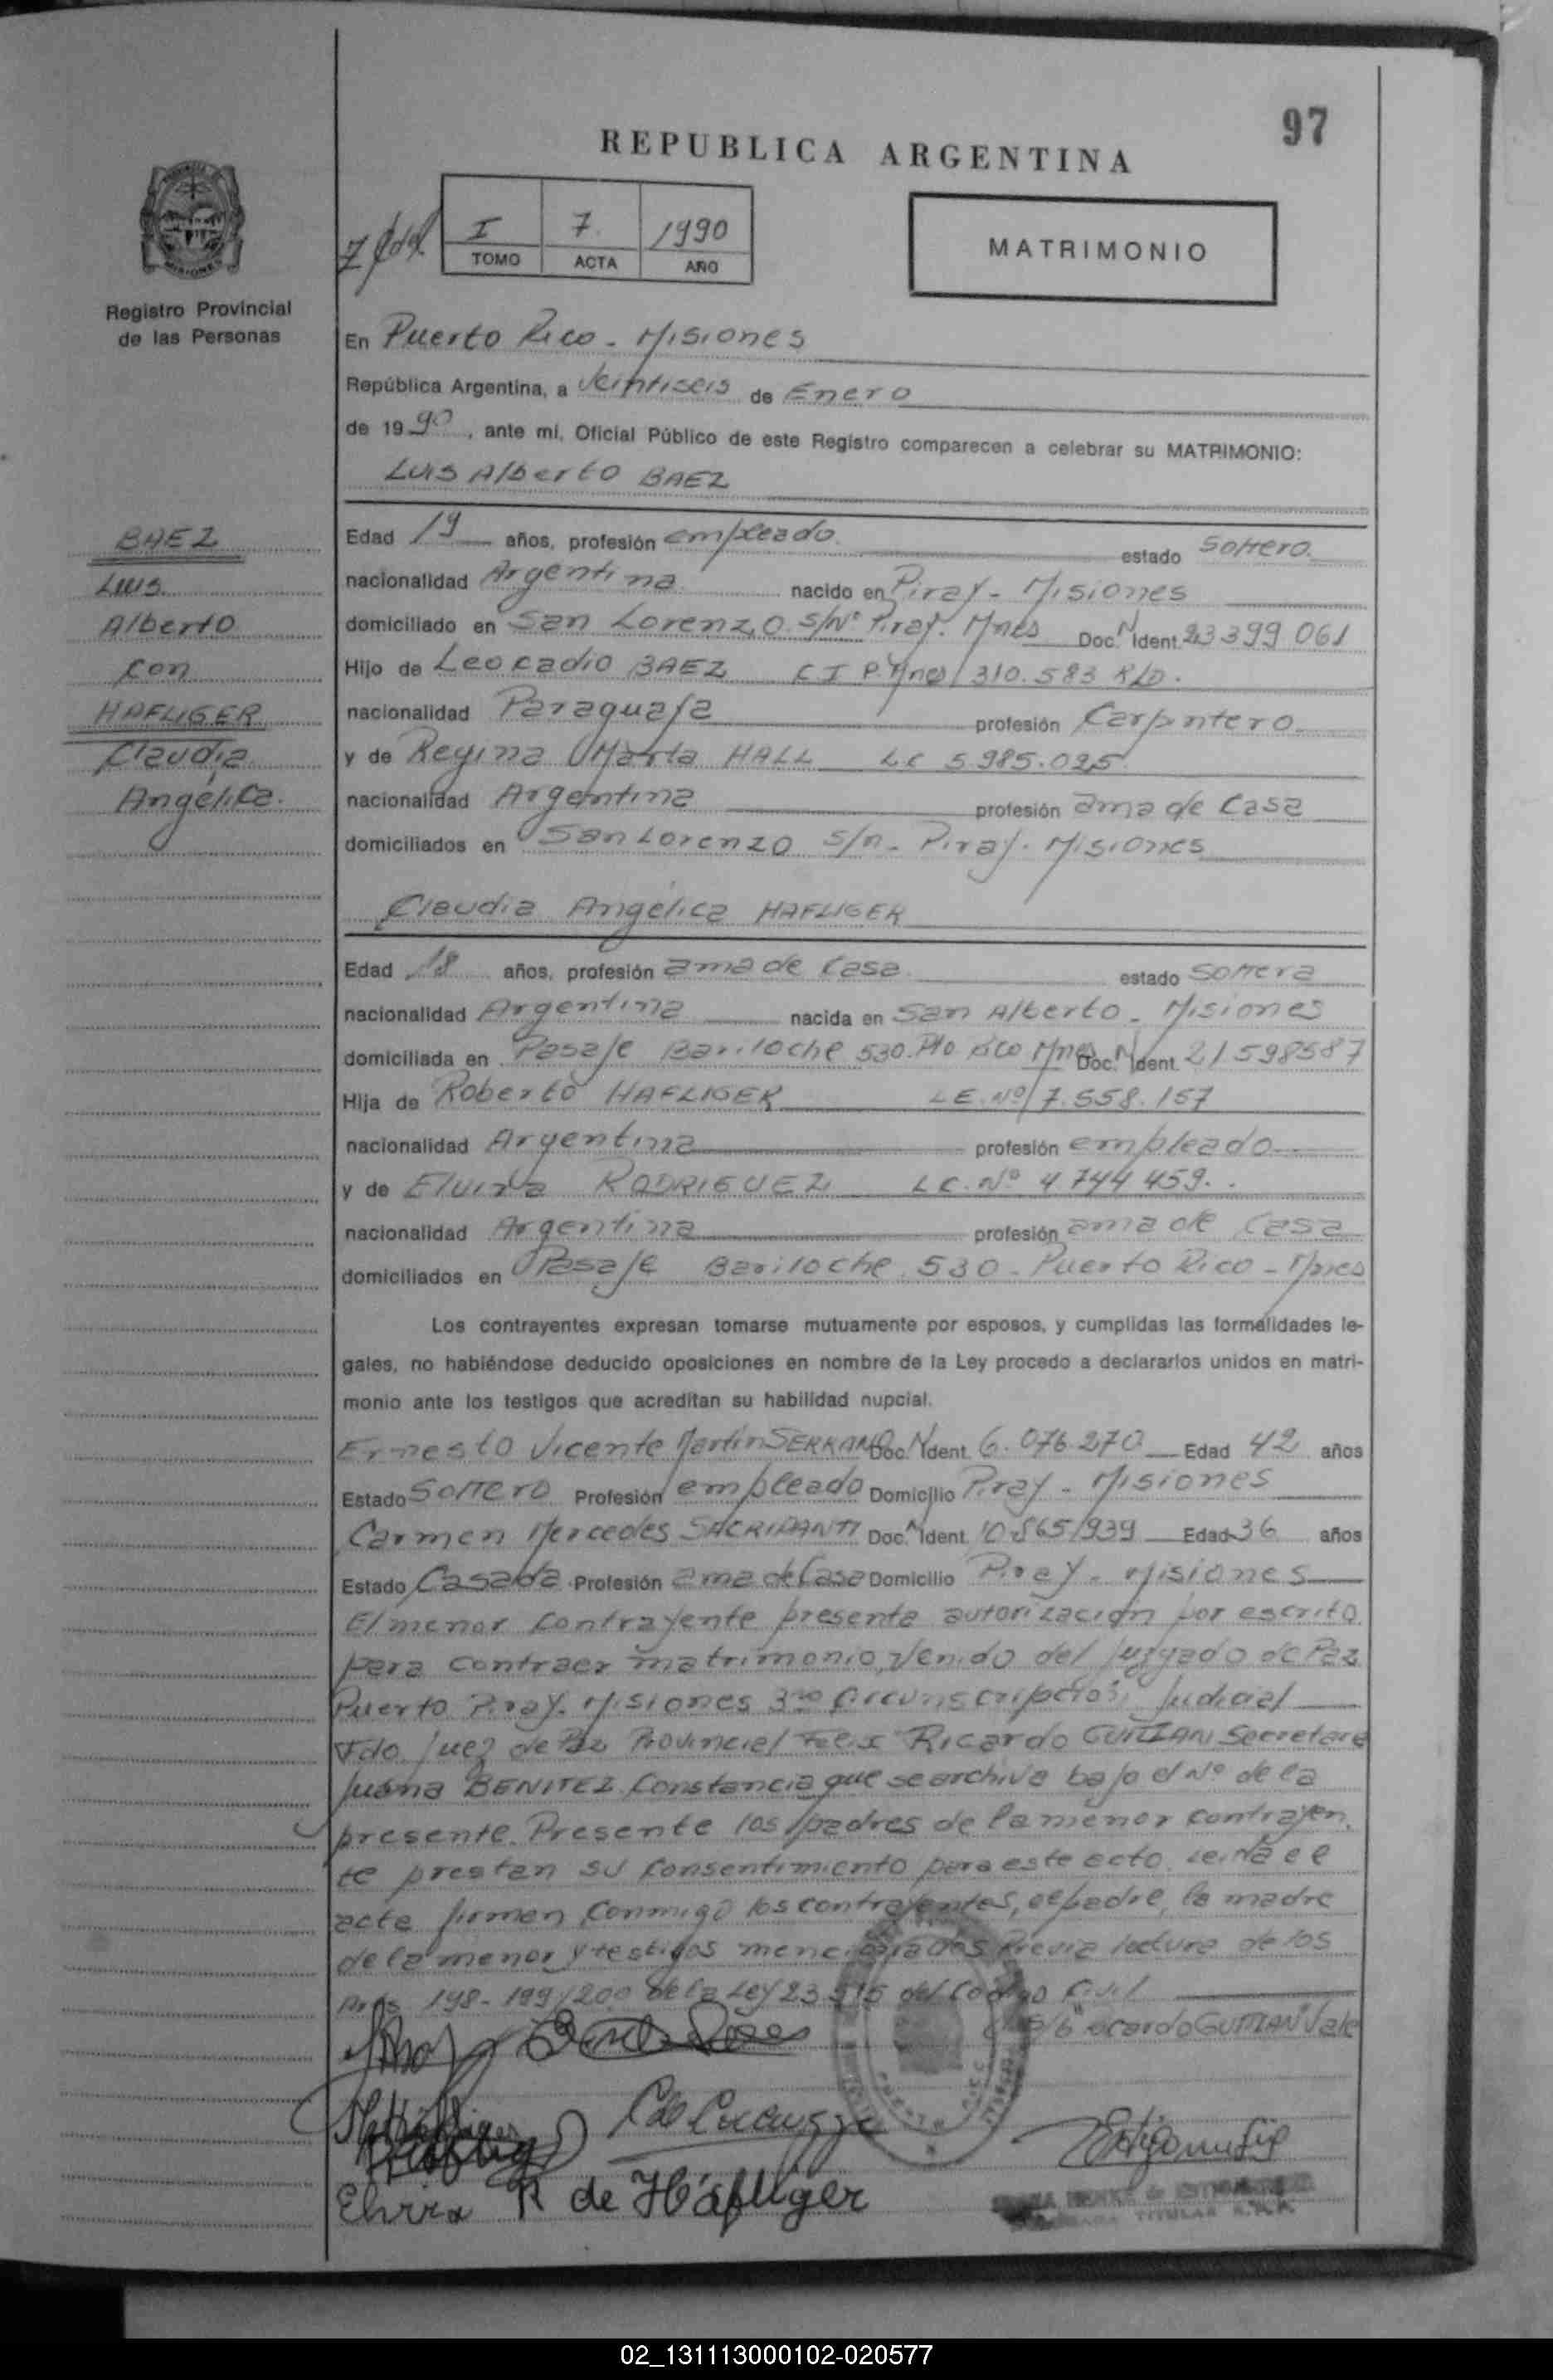 97
REPUBLICA ARGENTINA
I 7 1990
TOMO ACTA AÑO
MATRIMONIO
Registro Provincial
de las Personas
En Puerto Rico - Misiones
República Argentina, a Veintiseis de Enero
de 1990, ante mí, Oficial Público de este Registro comparecen a celebrar su MATRIMONIO:
Luis Alberto BAEZ
BAEZ
Luis
Alberto
con
HAFLIGER
Claudia
Angélica.
Edad 19 años, profesión empleado estado Soltero.
nacionalidad Argentina nacido en Piray - Misiones
domiciliado en San Lorenzo S/Nº Piray. Mnes Doc. N Ident. 23399 061
Hijo de Leocadio BAEZ CI P. Mnes 310.583 R/D.
nacionalidad Paraguaya profesión Carpintero
y de Regina Marta HALL LC 5.985.025
nacionalidad Argentina profesión ama de Casa
domiciliados en San Lorenzo s/n - Piray. Misiones
Claudia Angélica HAFLIGER
Edad 18 años, profesión ama de Casa estado Soltera
nacionalidad Argentina nacida en San Alberto - Misiones
domiciliada en Pasaje Bariloche 530. Pto Rico Mnes Doc. N Ident. 21598587
Hija de Roberto HAFLIGER LE. Nº 7.558.157
nacionalidad Argentina profesión empleado
y de Elvira RODRIGUEZ LC. Nº 4.744 459.
nacionalidad Argentina profesión ama de Casa
domiciliados en Pasaje Bariloche 530 - Puerto Rico - Mnes
Los contrayentes expresan tomarse mutuamente por esposos, y cumplidas las formalidades le-
gales, no habiéndose deducido oposiciones en nombre de la Ley procedo a declararlos unidos en matri-
monio ante los testigos que acreditan su habilidad nupcial.
Ernesto Vicente Martin SERRANO Doc. N Ident. 6.076.270 Edad 42 años
Estado Soltero Profesión empleado Domicilio Piray - Misiones
Carmen Mercedes SACRIPANTI Doc. N Ident. 10.865.939 Edad 36 años
Estado Casada Profesión ama de Casa Domicilio Piray - Misiones
El menor contrayente presenta autorización por escrito
para contraer matrimonio, venido del Juzgado de Paz
Puerto Piray. Misiones 3ra Circunscripción Judicial
Fdo Juez de Paz Provincial Felix Ricardo GUITIAN Secretaria
Juana BENITEZ Constancia que se archiva bajo el Nº de la
presente. Presente los padres de la menor contrayen,
te prestan su consentimiento para este acto. Leida el
acta firman conmigo los contrayentes, el padre, la madre
de la menor y testigos mencionados Previa lectura de los
Arts 198-199/200 de la Ley 23.515 del Código Civil
S/b Ricardo GUITIAN Vale
Elvira R de Háfliger
02_131113000102-020577